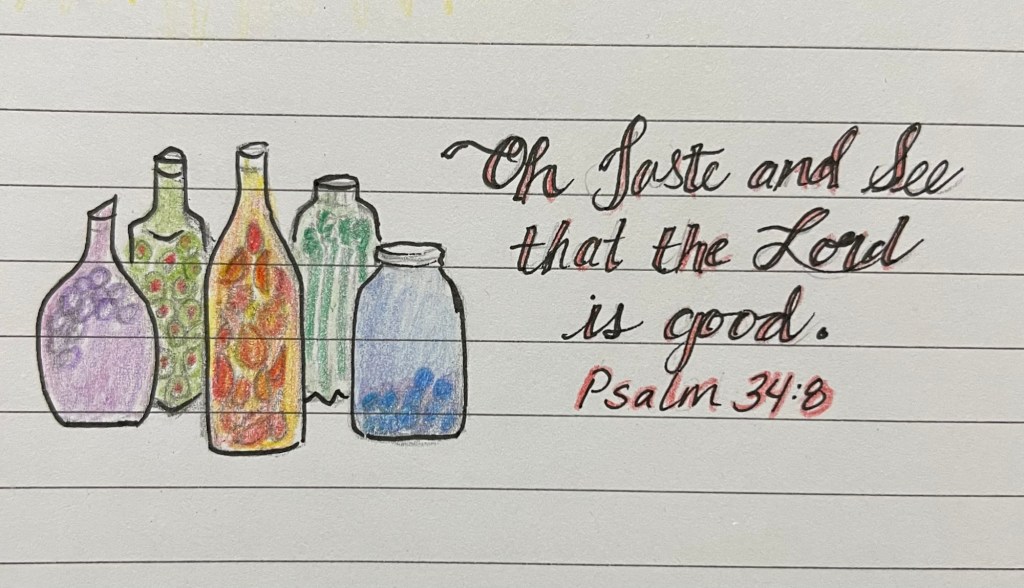 Oh Taste and See
that the Lord
is good.
Psalm 34:8